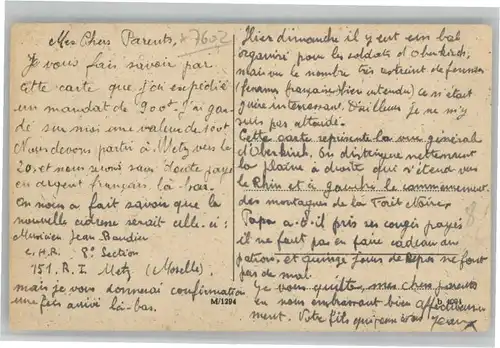 Mes Chers Parents, *7602
Je vous fais savoir par
cette carte que j'ai expédié
un mandat de 900f. J'ai gar-
dé sur moi une valeur de 100f
Nous devons partir à Metz vers le
20, et nous serons sans doute payé
en argent français là-bas.
On nous a fait savoir que la
nouvelle adresse serait celle-ci:
Musicien Jean Baudier
C.H.R. 8e Section
151. R.I Metz (Moselle)
mais je vous donnerai confirmation
une fois arrivé là-bas.
M/1294
Hier dimanche il y eut un bal
organisé pour les soldats d'Oberkirch,
mais vu le nombre très restreint de femmes
(femmes françaises bien entendu) ce n'était
guère intéressant. D'ailleurs je ne m'y
suis pas attardé.
Cette carte représente la vue générale
d'Oberkirch. On distingue nettement
la plaine à droite qui s'étend vers
le Rhin et à gauche le commencement
des montagnes de la Forêt Noire.
Papa a-t-il pris ses congés payés
il ne faut pas en faire cadeau au
patron, et quinze jours de repos ne font
pas de mal.
Je vous quitte, mes chers parents
en vous embrassant bien affectueuse-
ment. Votre fils qui
Jean